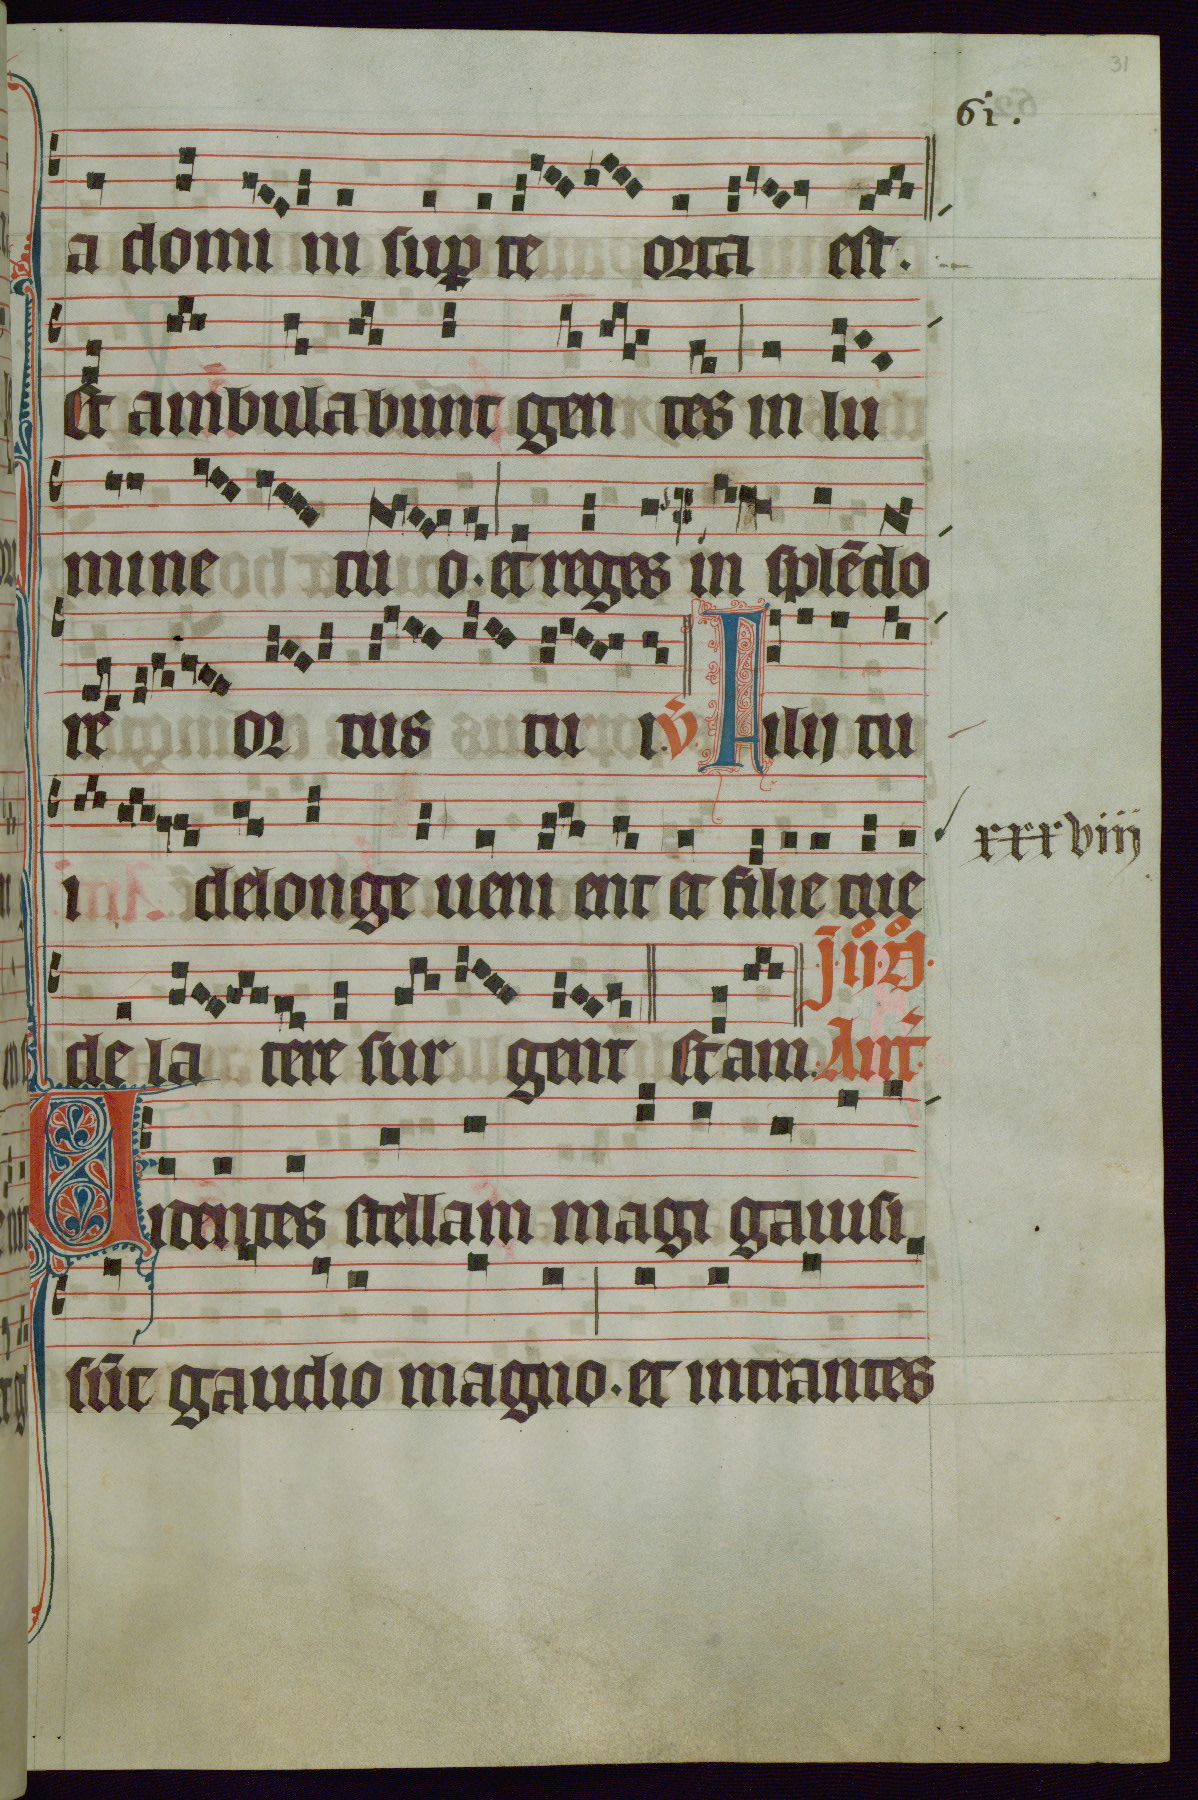 31
61.
a domi ni sup te orta est.
Et ambulabunt gen tes in lu
mine tu o. et reges in splēdo
re or tus tu i. V̄ Filij tu
i delonge ueni ent et filie tue
xxxviij
de la tere sur gent Et am. Ant̄
Uidentes stellam magi gauisi
sūt gaudio magno. et intrantes